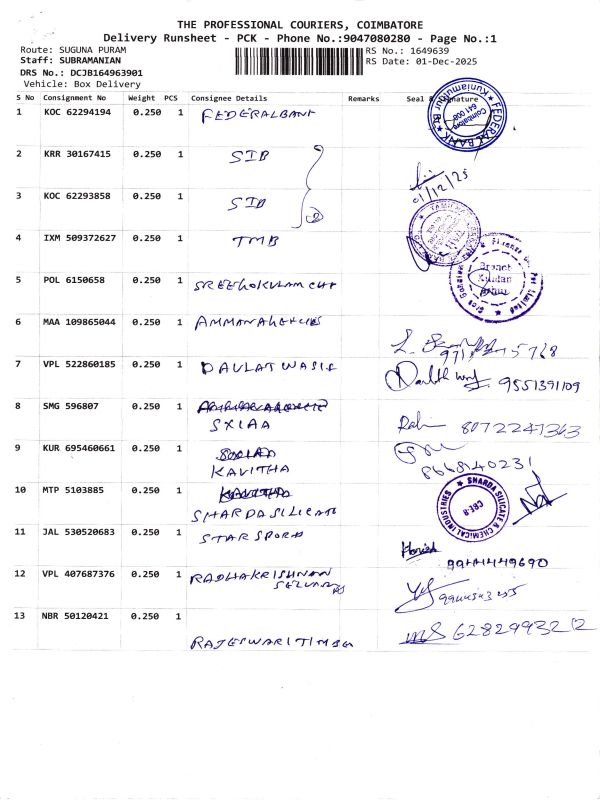 THE PROFESSIONAL COURIERS, COIMBATORE
Delivery Runsheet - PCK - Phone No.:9047080280 - Page No.:1
Route: SUGUNA PURAM
RS No.: 1649639
Staff: SUBRAMANIAN
RS Date: 01-Dec-2025
DRS No.: DCJB164963901
Vehicle: Box Delivery
S No Consignment No Weight PCS Consignee Details Remarks Seal & Signature
1 KOC 62294194 0.250 1 FEDERALBANK
FEDERAL BANK Kuniamuthur Br. Coimbatore 641 008
2 KRR 30167415 0.250 1 SIB
01/12/25
3 KOC 62293858 0.250 1 SIB
4 IXM 509372627 0.250 1 TMB
5 POL 6150658 0.250 1 SREEGOKULAM CHT
6 MAA 109865044 0.250 1 AMMANAGENCIES
7 VPL 522860185 0.250 1 DAULAT WASIF
9551391109
8 SMG 596807 0.250 1
SXIAA
8072247363
9 KUR 695460661 0.250 1
KAVITHA
8668140231
10 MTP 5103885 0.250 1
SHARDA SILICATE
SHARDA SILICATE & CHEMICAL INDUSTRIES CBE-8
11 JAL 530520683 0.250 1 STARSPORD
Harish 9944449690
12 VPL 407687376 0.250 1 RADHAKRISHNAN
13 NBR 50120421 0.250 1
RAJESWARI TIMBER
6282993212